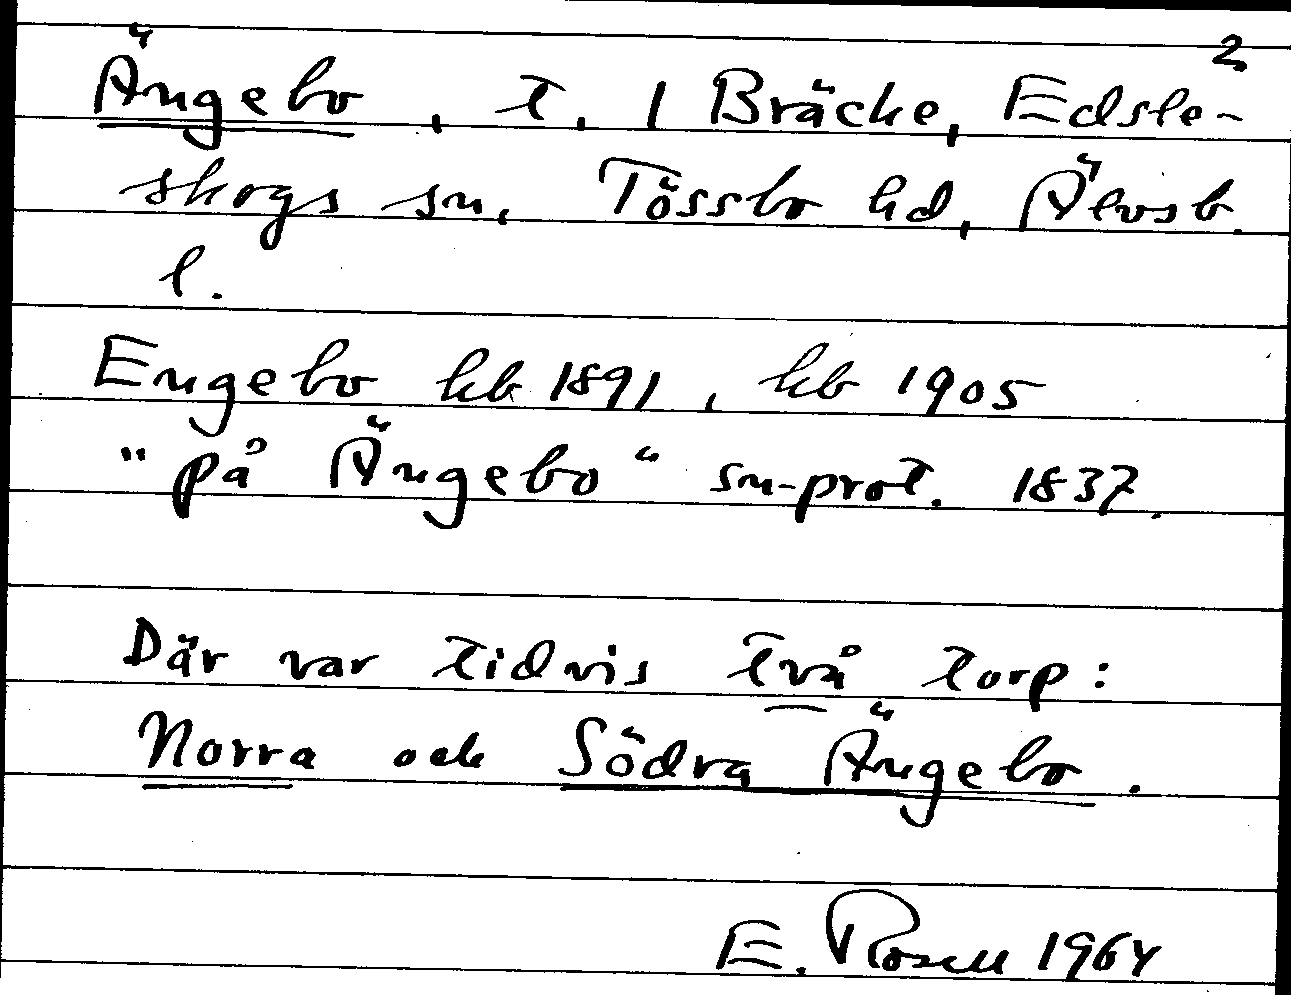 2
Ängebo, t. / Bräcke, Edsle-
skogs sn, Tössbo hd, Älvsb.
l.
Engebo hb 1891, hb 1905
"på Ängebo" sn-prot. 1837.
Där var tidvis två torp:
Norra och Södra Ängebo.
E. Rosell 1964